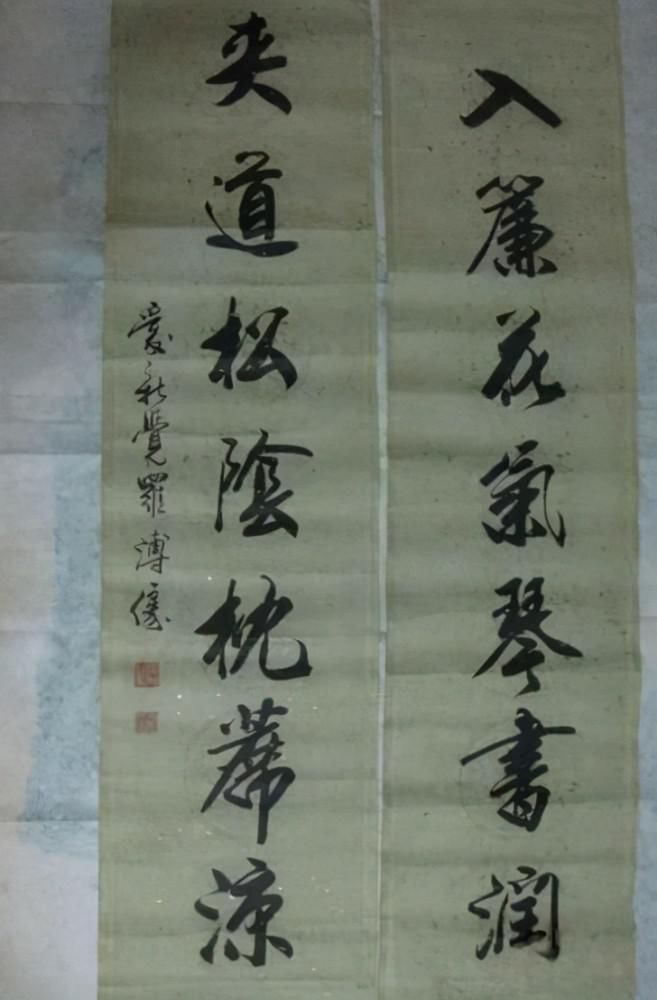 入簾花氣琴書潤
夾道松陰枕蓆涼
愛新覺羅溥㒞